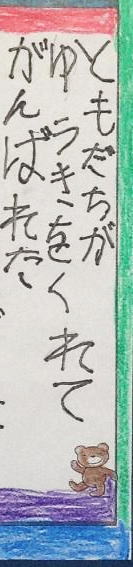 ともだちが
ゆうきをくれて
がんばれた